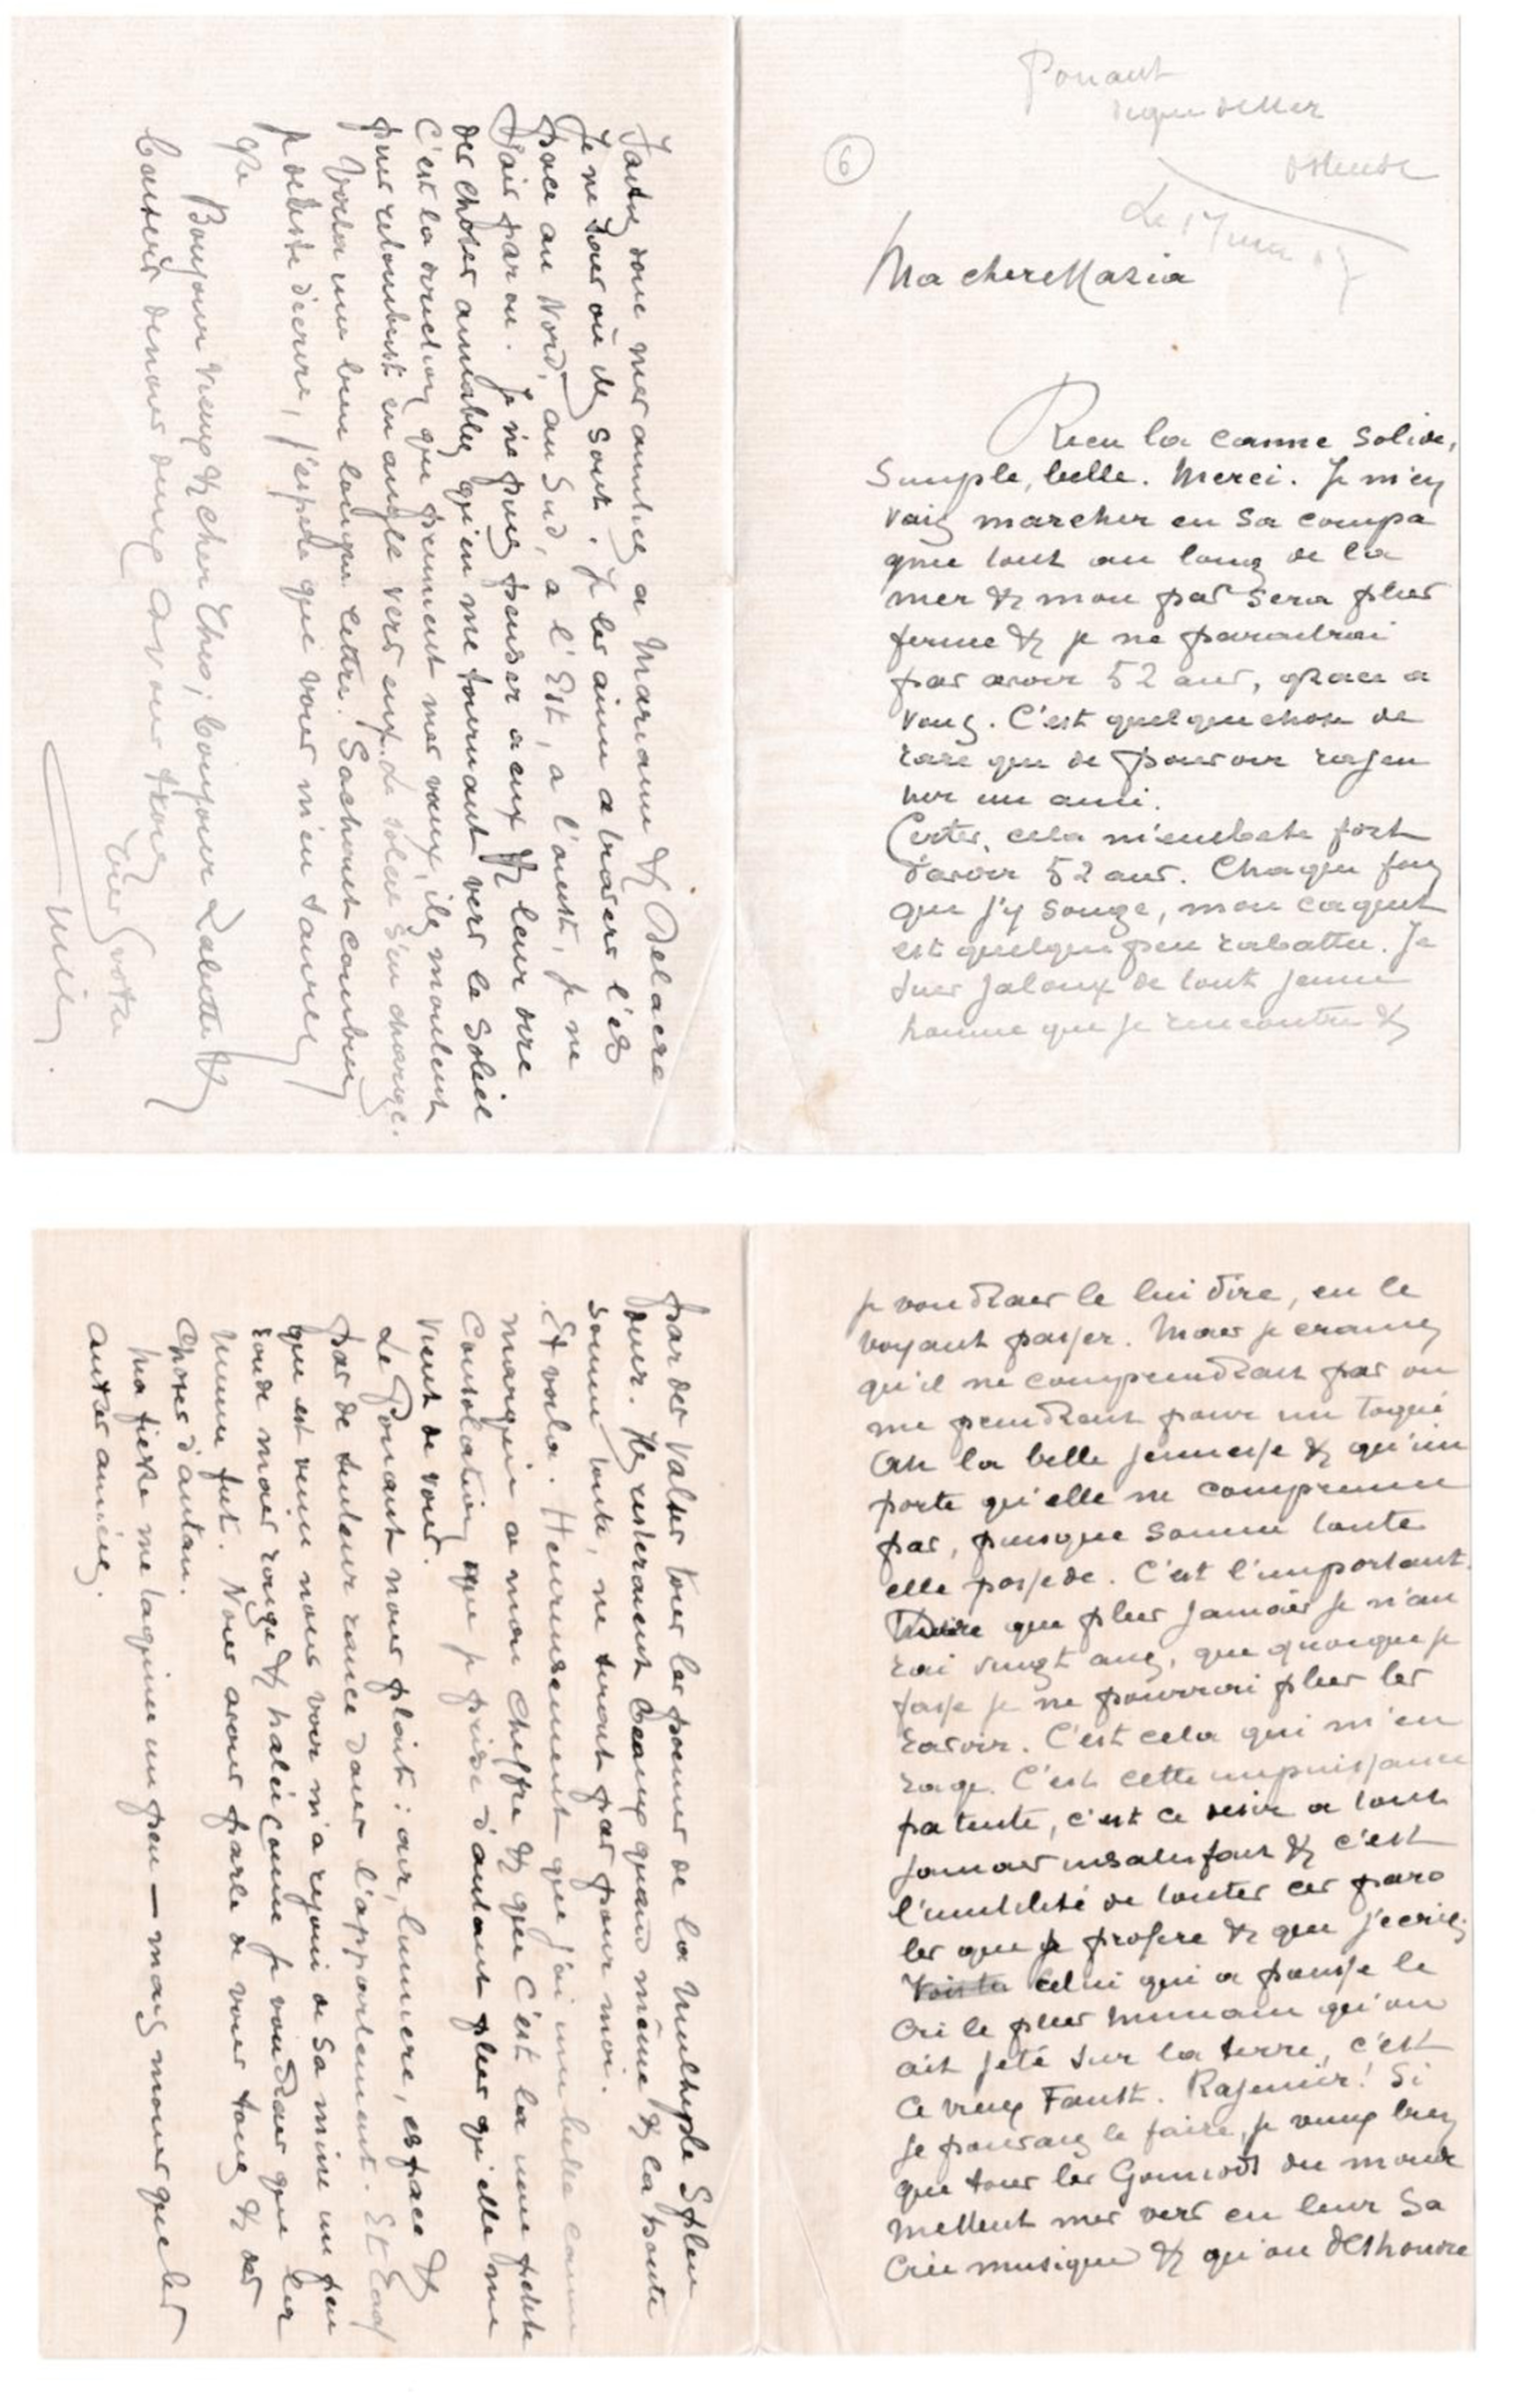 Ponant
digue de Mer
Ostende
Le 17 mai 07
6
Ma chere Maria
Recu la canne solide,
Souple, belle. Merci. Je m'en
vais marcher en sa compa
gnie tout au long de la
mer & mon pas sera plus
ferme & je ne paraitrai
pas avoir 52 ans, grace a
vous. C'est quelque chose de
rare que de pouvoir rajeu
nir un ami.
Certes, cela m'embete fort
d'avoir 52 ans. Chaque fois
que j'y songe, mon caquet
est quelque peu rabattu. Je
suis jaloux de tout jeune
homme que je rencontre &
je voudrais le lui dire, en le
voyant passer. Mais je crains
qu'il ne comprendrait pas ou
me prendrait pour un toqué
Oh la belle jeunesse & qu'im
porte qu'elle ne comprenne
pas, puisque somme toute
elle possede. C'est l'important.
Dire que plus jamais je n'au
rai vingt ans, que quoique je
fasse je ne pourrai plus les
ravoir. C'est cela qui m'en
rage. C'est cette impuissance
patente, c'est ce desir a tout
jamais insatisfait & c'est
l'inutilité de toutes ces paro
les que je profere & que j'ecris.
celui qui a poussé le
cri le plus humain qu'on
ait jeté sur la terre, c'est
ce vieux Faust. Rajeunir! Si
je pouvais le faire, je veux bien
que tous les Gounods du monde
mettent mes vers en leur sa
crée musique & qu'on deshonore
par des valses tous les poemes de la Multiple Splen
deur. Ils resteraient beaux quand même & la honte
somme toute, ne serait pas pour moi.
Et voila. Heureusement que j'ai une belle canne
marquée a mon chiffre & que c'est la une petite
consolation que je prise d'autant plus qu'elle me
vient de vous.
Le Ponant nous plait: air, lumiere, espace &
pas de senteur rance dans l'appartement. Et
que est venu nous voir m'a rejoui de sa mine un peu
ronde mais rouge & halée comme je voudrais que la
mienne fut. Nous avons parlé de vous tous & des
choses d'antan.
Ma fievre me taquine un peu — mais moins que les
autres années.
Faites donc mes amitiés a Marianne & Delacre
Je ne sais où ils sont. Je les aime a travers l'es
pace au Nord, au Sud, a l'Est, a l'ouest, je ne
sais par ou. Je ne puis penser a eux & leur dire
des choses aimables qu'en me tournant vers le soleil
C'est la direction que prennent mes vœux, ils montent
pour retomber en angle vers eux. Le soleil s'en charge.
Voila une bien longue lettre. Sachant combien
je deteste d'ecrire, j'espere que vous m'en saurez
gre
Bonjour vieux & cher Theo; bonjour Zalette &
baisers de nous deux a vous trois
votre